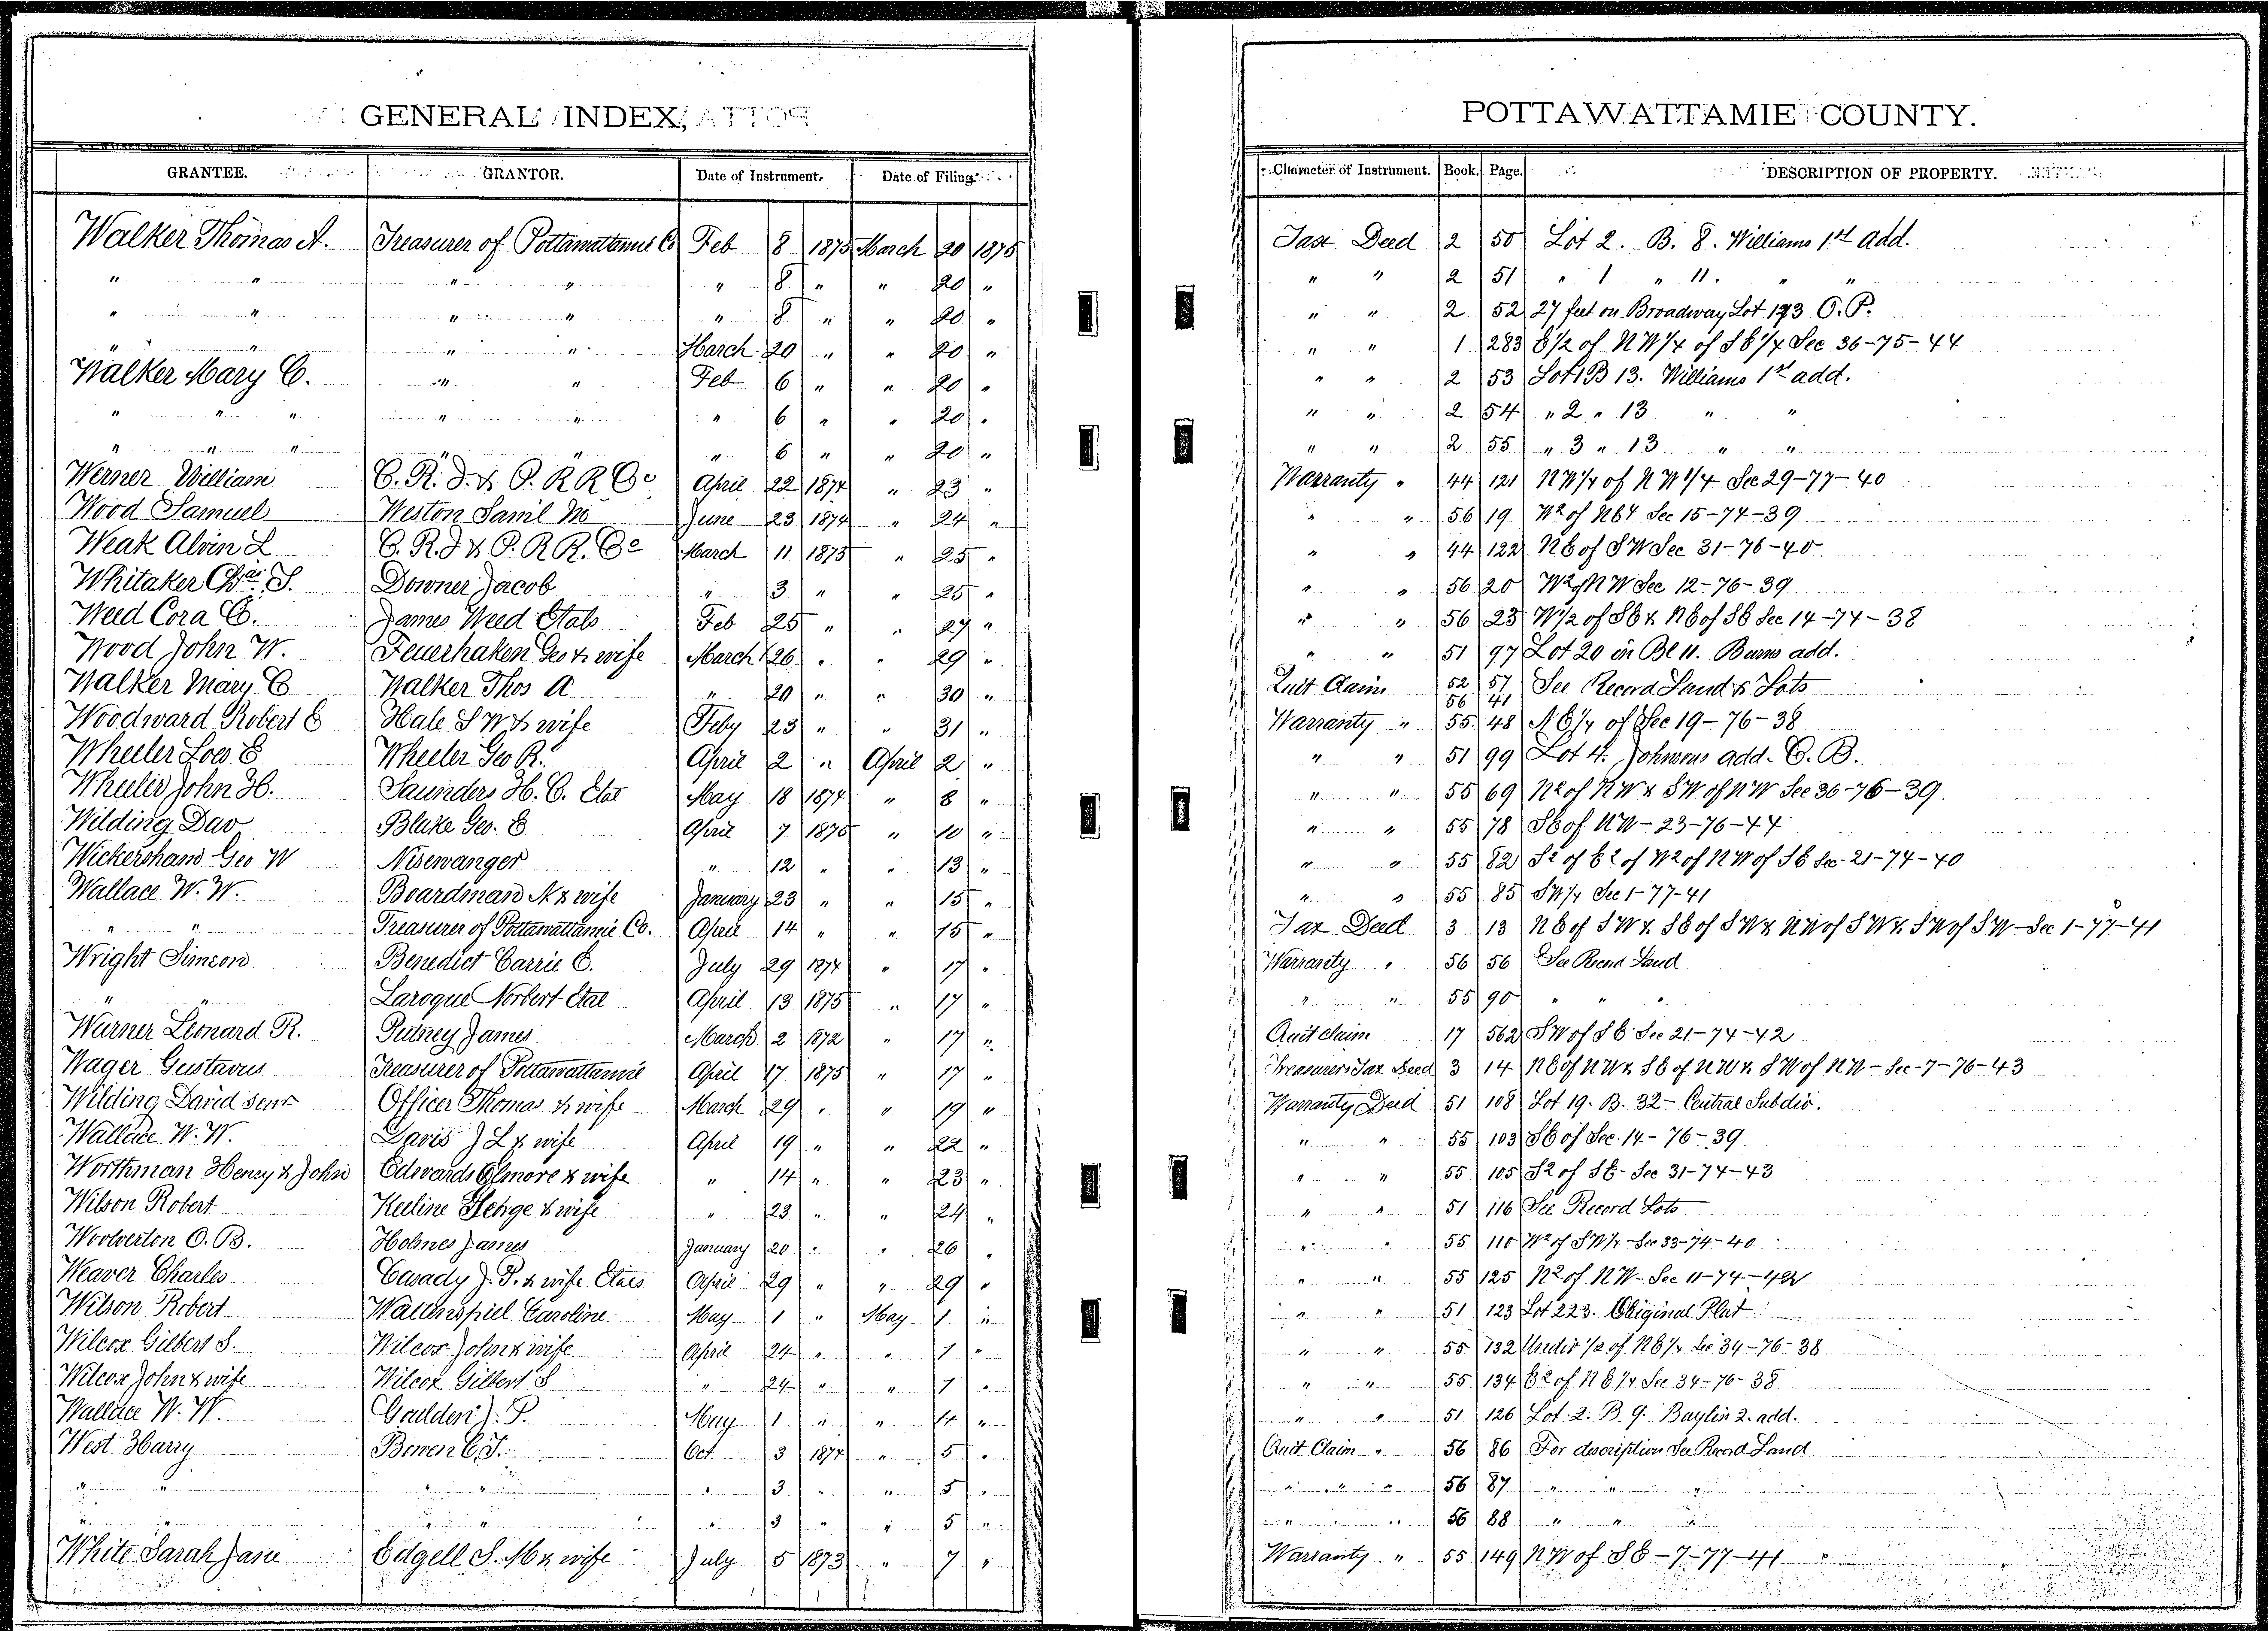 GENERAL INDEX,
GRANTEE. GRANTOR. Date of Instrument. Date of Filing.
Walker Thomas A. Treasurer of Pottawattamie Co Feb 8 1875 March 20 1875
" " " " " 8 " " 20 "
" " " " " 8 " " 20 "
" " " " March 20 " " 20 "
Walker Mary C. " " Feb 6 " " 20 "
" " " " " " 6 " " 20 "
" " " " " " 6 " " 20 "
Werner William C. R. I. & P. R R Co April 22 1874 " 23 "
Wood Samuel Weston Saml No June 23 1874 " 24 "
Weak Alvin L C. R. I & P. R R. Co March 11 1875 " 25 "
Whitaker Chas S. Downer Jacob " 3 " " 25 "
Weed Cora E. James Weed Etals Feb 25 " " 27 "
Wood John W. Feuerhaken Geo & wife March 26 " " 29 "
Walker Mary C Walker Thos A " 20 " " 30 "
Woodward Robert E Hale S W & wife Feby 23 " " 31 "
Wheeler Loes E Wheeler Geo R. April 2 " April 2 "
Wheeler John H. Saunders H. C. Etal May 18 1874 " 8 "
Wilding Dav Blake Geo. E April 7 1875 " 10 "
Wickersham Geo W Nisewanger " 12 " " 13 "
Wallace W. W. Boardman N & wife January 23 " " 15 "
" " Treasurer of Pottawattamie Co. April 14 " " 15 "
Wright Simeon Benedict Carrie E. July 29 1874 " 17 "
" " Laroque Norbert Etal April 13 1875 " 17 "
Warner Leonard R. Putney James March 2 1872 " 17 "
Wager Gustavus Treasurer of Pottawattamie April 17 1875 " 17 "
Wilding David Senr Officer Thomas & wife March 29 " " 19 "
Wallace W. W. Davis J L & wife April 19 " " 22 "
Worthman Henry & John Edwards Elmore & wife " 14 " " 23 "
Wilson Robert Keeline George & wife " 23 " " 24 "
Woolverton O. B. Holmes James January 20 " " 26 "
Weaver Charles Casady J. P. & wife Etals April 29 " " 29 "
Wilson Robert Wattenspiel Caroline May 1 " May 1 "
Wilcox Gilbert S. Wilcox John & wife April 24 " " 1 "
Wilcox John & wife Wilcox Gilbert S " 24 " " 1 "
Wallace W. W. Gaulden J. P. May 1 " " 4 "
West Harry Bowen C J. Oct 3 1874 " 5 "
" " " " " 3 " " 5 "
" " " " " 3 " " 5 "
White Sarah Jane Edgell S. M & wife July 5 1873 " 7 "
POTTAWATTAMIE COUNTY.
Character of Instrument. Book. Page. DESCRIPTION OF PROPERTY.
Tax Deed 2 50 Lot 2. B. 8. Williams 1st add.
" " 2 51 " 1 " 11. " "
" " 2 52 27 feet on Broadway Lot 193 O. P.
" " 1 283 E 1/2 of N W 1/4 of S E 1/4 Sec 36-75-44
" " 2 53 Lot 1 B 13. Williams 1st add.
" " 2 54 " 2 " 13 " "
" " 2 55 " 3 " 13 " "
Warranty " 44 121 N W 1/4 of N W 1/4 Sec 29-77-40
" " 56 19 W2 of NE4 Sec 15-74-39
" " 44 122 N E of S W Sec 31-76-40
" " 56 20 W2 of N W Sec 12-76-39
" " 56 23 W 1/2 of S E & N E of S E Sec 14-74-38
" " 51 97 Lot 20 in Bl 11. Burns add.
Quit Claim 52 57 See Record Land & Lots
56 41
Warranty " 55 48 N E 1/4 of Sec 19-76-38
" " 51 99 Lot 4. Johnsons add. C. B.
" " 55 69 N2 of N W & S W of N W Sec 36-76-39
" " 55 78 S E of N W - 23-76-44
" " 55 82 S2 of E2 of W2 of N W of S E Sec. 21-74-40
" " 55 85 S W 1/4 Sec 1-77-41
Tax Deed 3 13 N E of S W & S E of S W & N W of S W & S W of S W - Sec 1-77-41
Warranty " 56 56 See Record Land
" " 55 90 " " "
Quit Claim 17 562 S W of S E Sec 21-74-42
Treasurers Tax Deed 3 14 N E of N W & S E of N W & S W of N W - Sec-7-76-43
Warranty Deed 51 108 Lot 19. B. 32 - Central Subdiv.
" " 55 103 S E of Sec. 14-76-39
" " 55 105 S2 of S E - Sec 31-74-43
" " 51 116 See Record Lots
" " 55 110 W2 of S W 1/4 - Sec 33-74-40
" " 55 125 N2 of N W - Sec 11-74-42
" " 51 123 Lot 223. Original Plat
" " 55 132 Undiv 1/2 of N E 1/4 Sec 34-76-38
" " 55 134 E2 of N E 1/4 Sec 34-76-38
" " 51 126 Lot 2. B 9. Baylis 2. add.
Quit Claim " 56 86 For description See Record Land
" " " 56 87 " " "
" " 56 88 " " "
Warranty " 55 149 N W of S E - 7-77-41